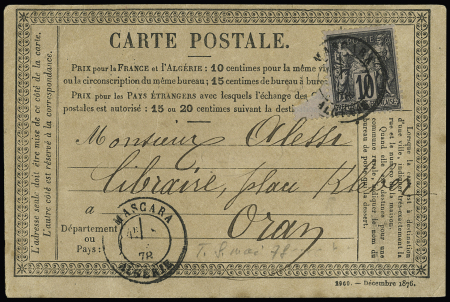 CARTE POSTALE.
PRIX pour la FRANCE et l'ALGÉRIE: 10 centimes pour la même vi
ou la circonscription du même bureau; 15 centimes de bureau à bure
PRIX pour les PAYS ÉTRANGERS avec lesquels l'échange des
postales est autorisé: 15 ou 20 centimes suivant la desti
10
L'adresse seule doit être mise de ce côté de la carte.
L'autre côté est réservé à la correspondance.
Monsieur Alessi
Libraire, place Kleber
à Oran
Département
ou
Pays:
MASCARA
78
ALGÉRIE
T. 8 mai 78
Lorsque
d'une ville,
rue et la
Quand elle
commune rurale, indiquer le nom du
bureau de poste qui la dessert.
2960. — Décembre 1876.